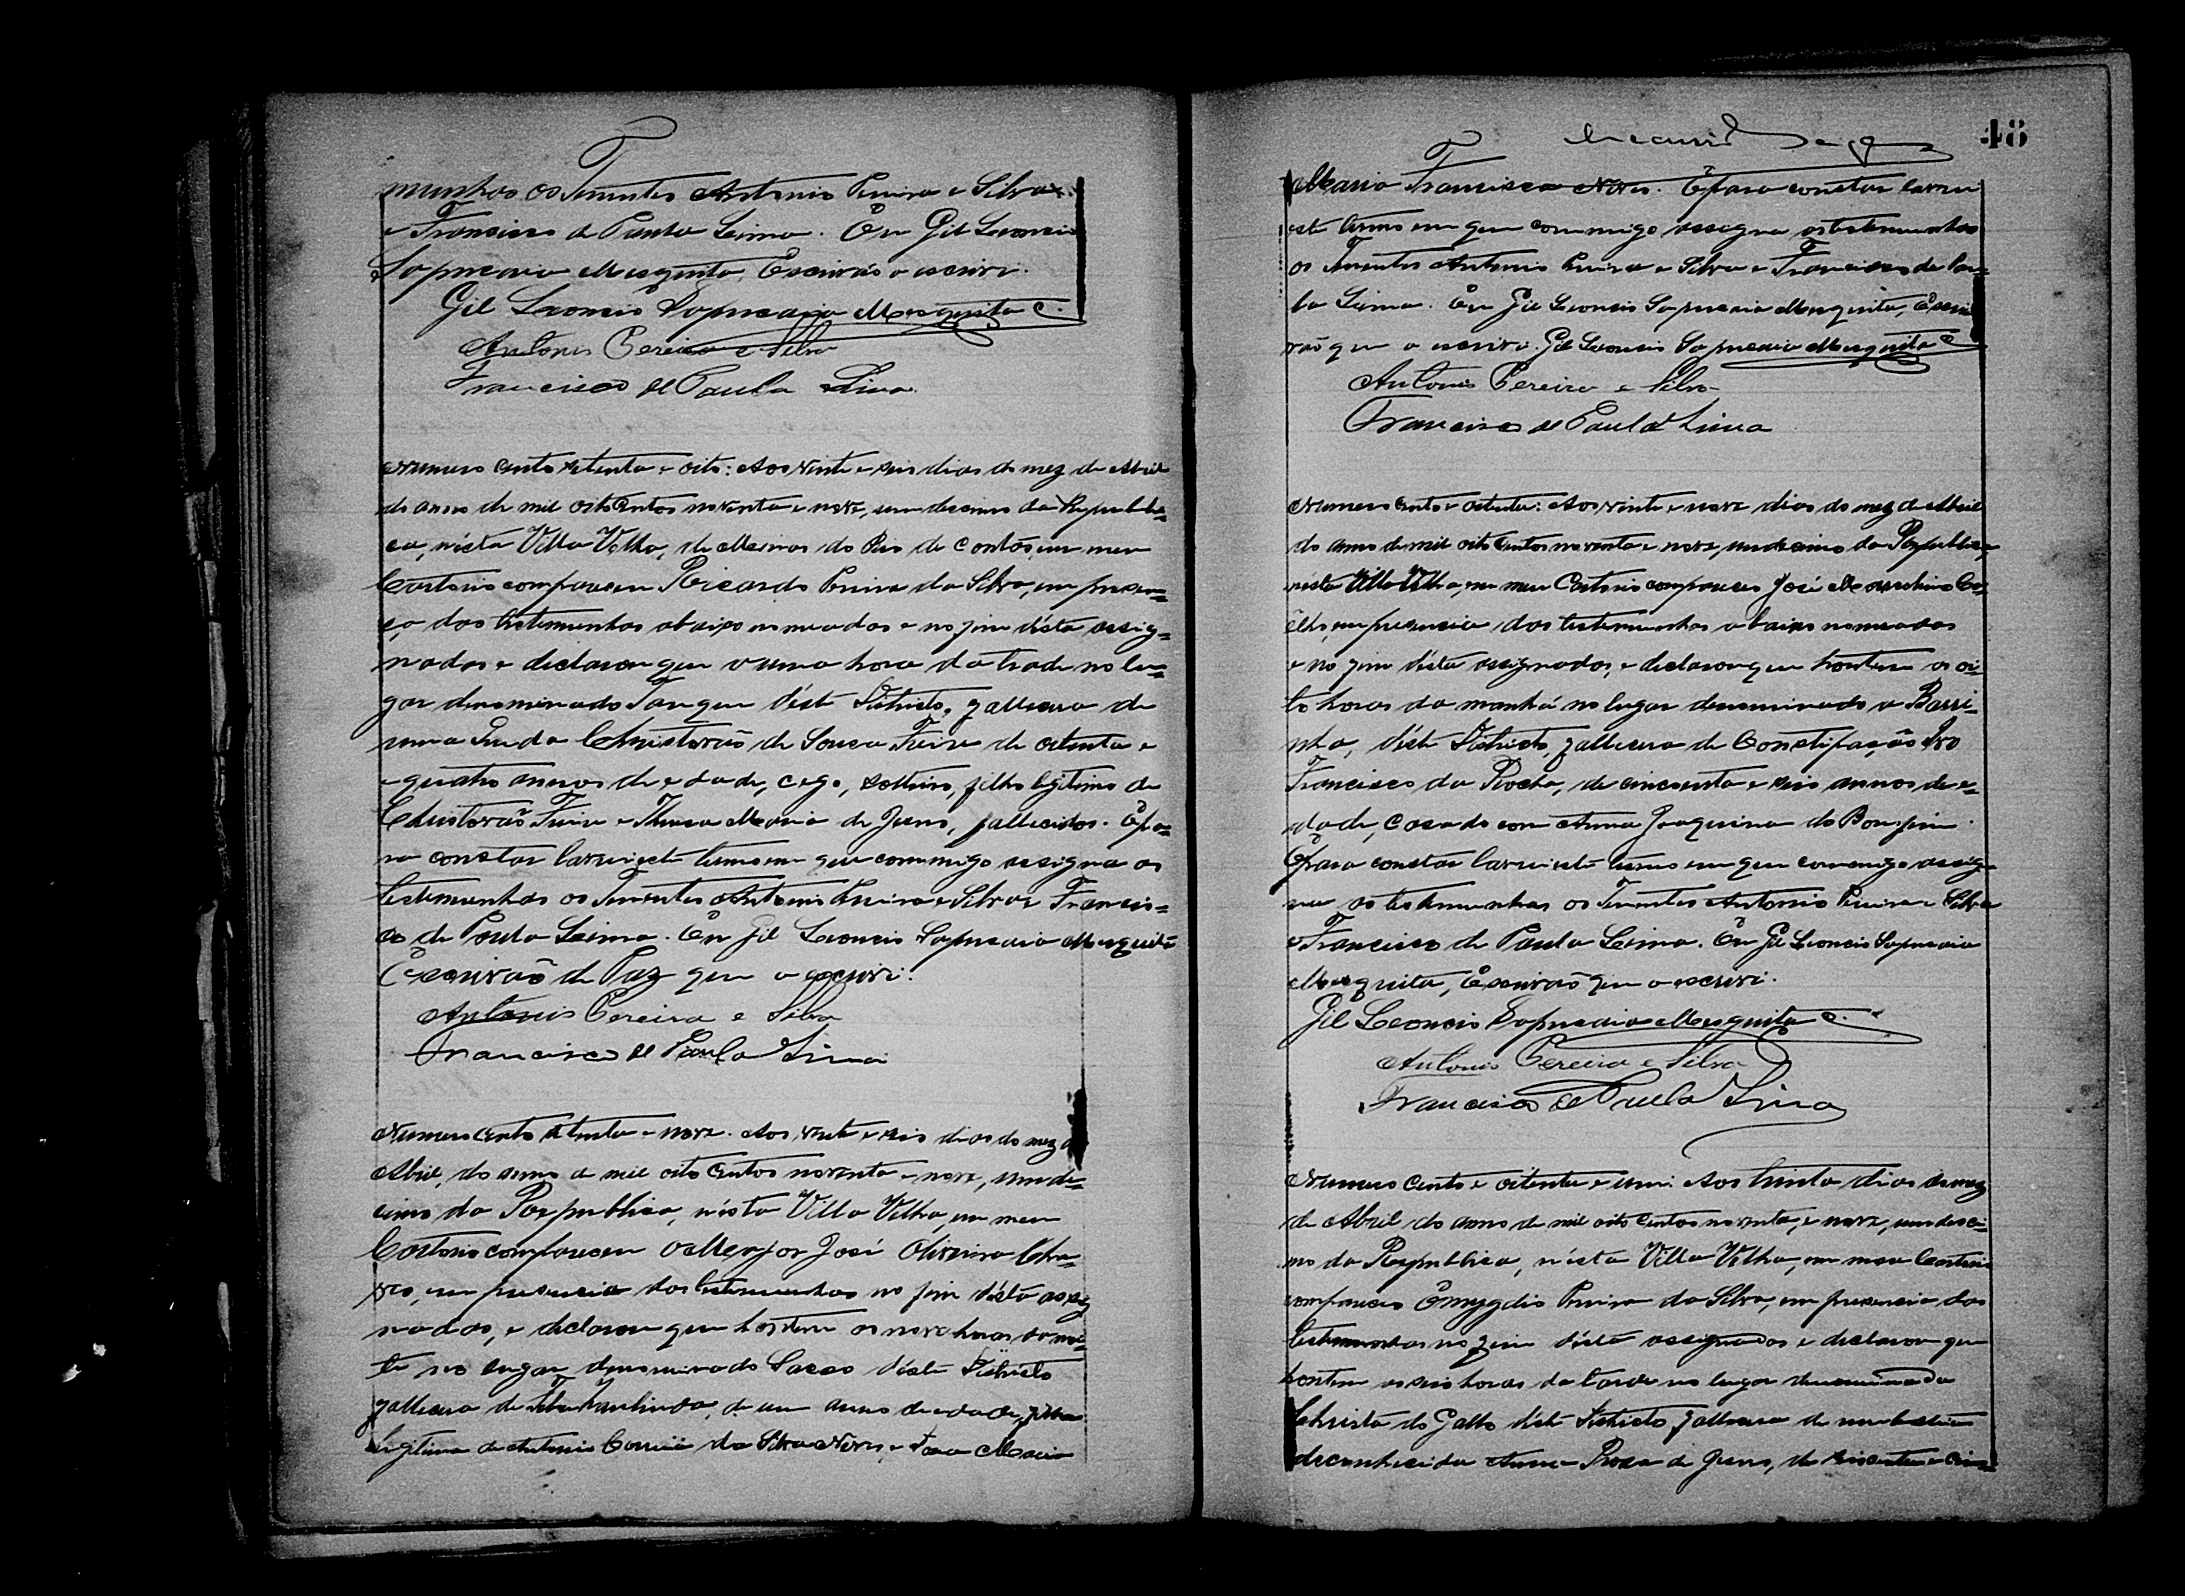 munhas os Tenentes Antonio Pereira e Silva
e Francisco de Paula Lima. Eu Gil Leoncio
Sapucaia Mesquita, Escrivão o escrivi.
Gil Leoncio Sapucaia Mesquita
Antonio Pereira e Silva
Francisco de Paula Lima
Numero cento setenta e oito: Aos vinte e seis dias do mez de Abril
do anno de mil oito centos noventa e nove, undecimo da Republi-
ca, nésta Villa Velha, de Minas do Rio de Contas, em meu
Cartorio compareceu Ricardo Pereira da Silva, em presen-
ça das testemunhas abaixo nomeadas e no fim désta assig-
nadas e declarou que a uma hora da tarde no lu-
gar denominado Tanque déste Districto, falleceu de
uma Christovão de Souza Freire de oitenta e
e quatro annos de edade, cego, solteiro, filho legitimo de
Christovão Freire e Thereza Maria de Jesus, fallecidos. E pa-
ra constar lavrei este termo em que commigo assigna as
testemunhas os Tenentes Antonio Pereira e Silva e Francis-
co de Paula Lima. Eu Gil Leoncio Sapucaia Mesquita
Escrivão de Paz que o escrivi.
Antonio Pereira e Silva
Francisco de Paula Lima
Numero cento setenta e nove. Aos vinte e seis dias do mez de
Abril, do anno de mil oito centos noventa e nove, unde-
cimo da Republica, nésta Villa Velha, em meu
Cartorio compareceu o Major José Oliveira
em presencia das testemunhas no fim désta assig
nadas, e declarou que hontem as nove horas da noi-
te no lugar denominado Sacco déste Districto
falleceu de de um anno de edade, filha
legitima de Antonio Correia da Silva Neves, e Maria
48
Maria Francisca Neves. E para constar lavrei
este termo em que commigo assigna as testemunhas
os Tenentes Antonio Pereira e Silva e Francisco de Pau-
la Lima. Eu Gil Leoncio Sapucaia Mesquita, Escri
vão que o escrivi. Gil Leoncio Sapucaia Mesquita
Antonio Pereira e Silva
Francisco de Paula Lima
Numero cento e oitenta: Aos vinte e nove dias do mez de Abril
do anno de mil oito centos noventa e nove, undecimo da Republica,
nésta Villa Velha, em meu Cartorio compareceu José Marcelino Co-
êlho, em presencia das testemunhas abaixo nomeadas
e no fim désta assignados, e declarou que hontem as oi-
to horas da manhã no lugar denominado a Barri-
nha, déste Districto, falleceu de Constipação
Francisco da Rocha, de cincoenta e seis annos de e-
dade, casado com Anna Joaquina do Bomfim.
E para constar lavrei este termo em que commigo assig-
na as testemunhas os Tenentes Antonio Pereira e Silva
e Francisco de Paula Lima. Eu Gil Leoncio Sapucaia
Mesquita, Escrivão que o escrivi.
Gil Leoncio Sapucaia Mesquita
Antonio Pereira e Silva
Francisco de Paula Lima
Numero cento e oitenta e um: Aos trinta dias do mez
de Abril do anno de mil oito centos noventa, e nove, undeci-
mo da Republica, nésta Villa Velha, em meu Cartorio
compareceu Emygdio Pereira da Silva, em presencia das
testemunhas no fim désta assignados e declarou que
hontem as seis horas da tarde no lugar denominado
Christa do Gallo déste Districto, falleceu de molestia
deconhecida Anna Roza de Jesus, de e cin-